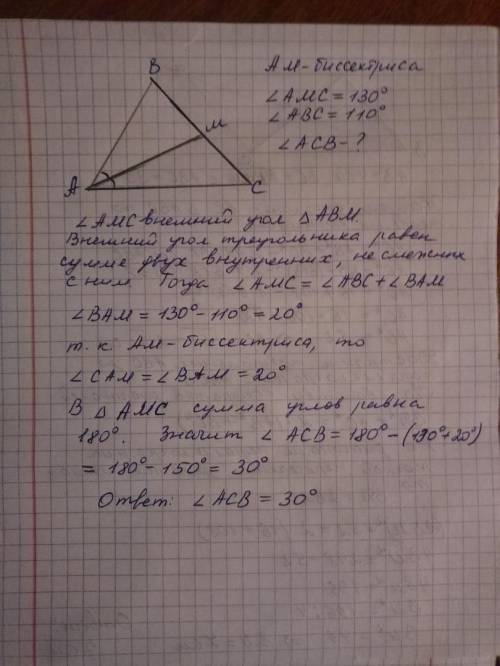 B
M
A
C
AM-биссектриса
∠AMC = 130°
∠ABC = 110°
∠ACB - ?
∠AMC внешний угол △ABM.
Внешний угол треугольника равен
сумме двух внутренних, не смежних
с ним Тогда ∠AMC = ∠ABC + ∠BAM
∠BAM = 130° - 110° = 20°
т.к AM-биссектриса, то
∠CAM = ∠BAM = 20°
В △AMC сумма углов равна
180°. Значит ∠ACB = 180° - (130° + 20°)
= 180° - 150° = 30°
Ответ: ∠ACB = 30°